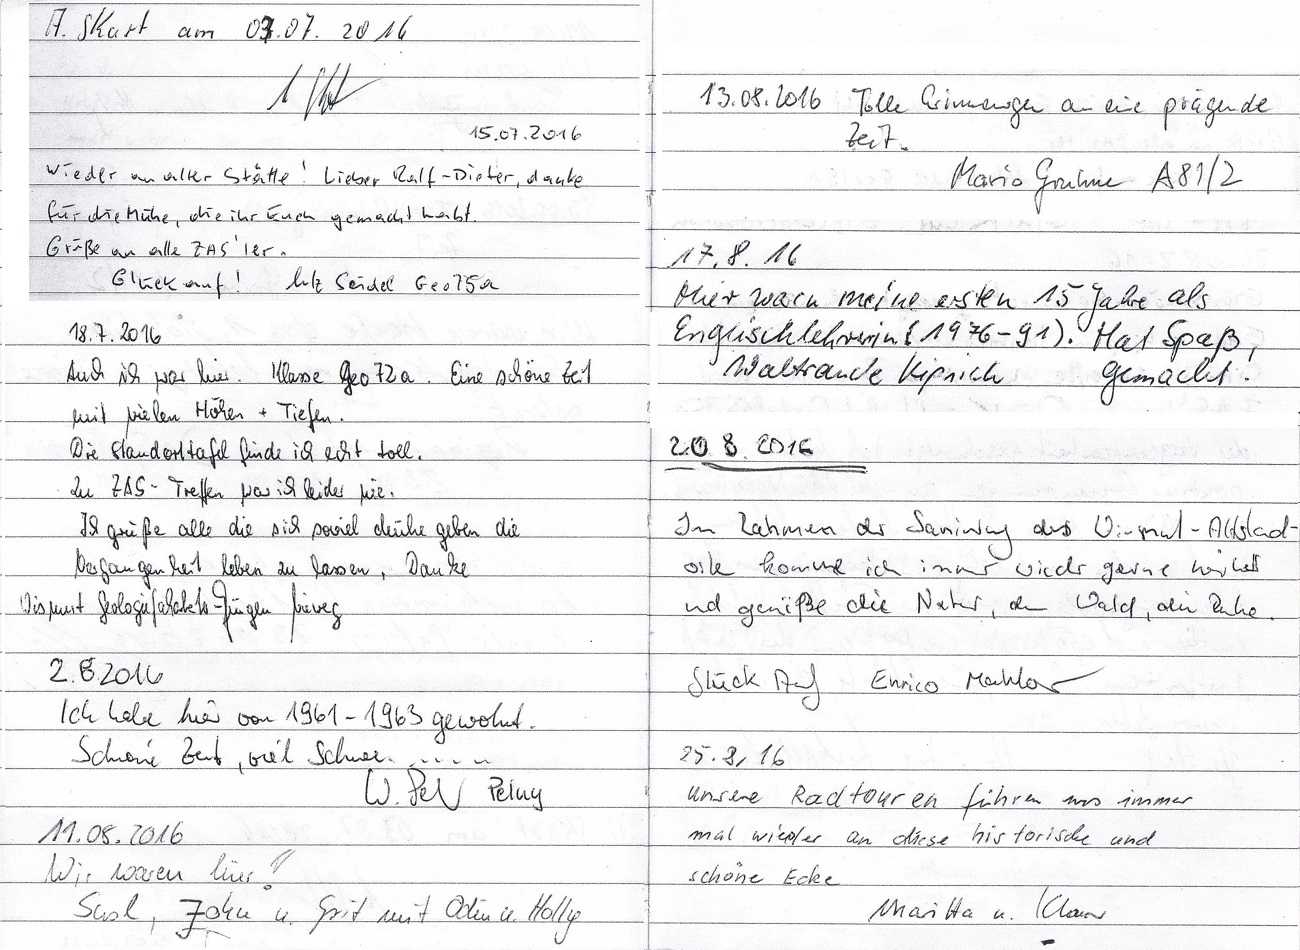 A. Skart am 03.07. 2016
15.07.2016
Wieder an alter Stätte! Lieber Ralf-Dieter, danke
für die Mühe, die ihr Euch gemacht habt.
Grüße an alle ZAS'ler.
Glück auf! Lutz Seidel Geo75a
18.7.2016
Auch ich war hier. Klasse Geo72a. Eine schöne Zeit
mit vielen Höhen + Tiefen.
Die Standorttafel finde ich echt toll.
Zu ZAS-Treffen war ich leider nie.
Ich grüße alle die sich soviel Mühe geben die
Vergangenheit leben zu lassen, Danke
Wismut Geologiefacharb. Jürgen
2.8.2016
Ich habe hier von 1961-1963 gewohnt.
Schöne Zeit, viel Schnee.....
W. Pelny
11.08.2016
Wir waren hier!
John u. Grit mit Odin u. Holly
13.08.2016 Tolle Erinnerungen an eine prägende
Zeit.
Mario A81/2
17.8.16
Hier warn meine ersten 15 Jahre als
Englischlehrerin (1976-91). Hat Spaß,
Waltraude gemacht.
20.8.2016
Im Rahmen der Sanierung des Wismut-Altstand-
orte komme ich immer wieder gerne hierher
und genieße die Natur, den Wald, die Ruhe.
Glück Auf Enrico
25.8.16
Unsere Radtouren führen uns immer
mal wieder an diese historische und
schöne Ecke
Maritta u. Klaus